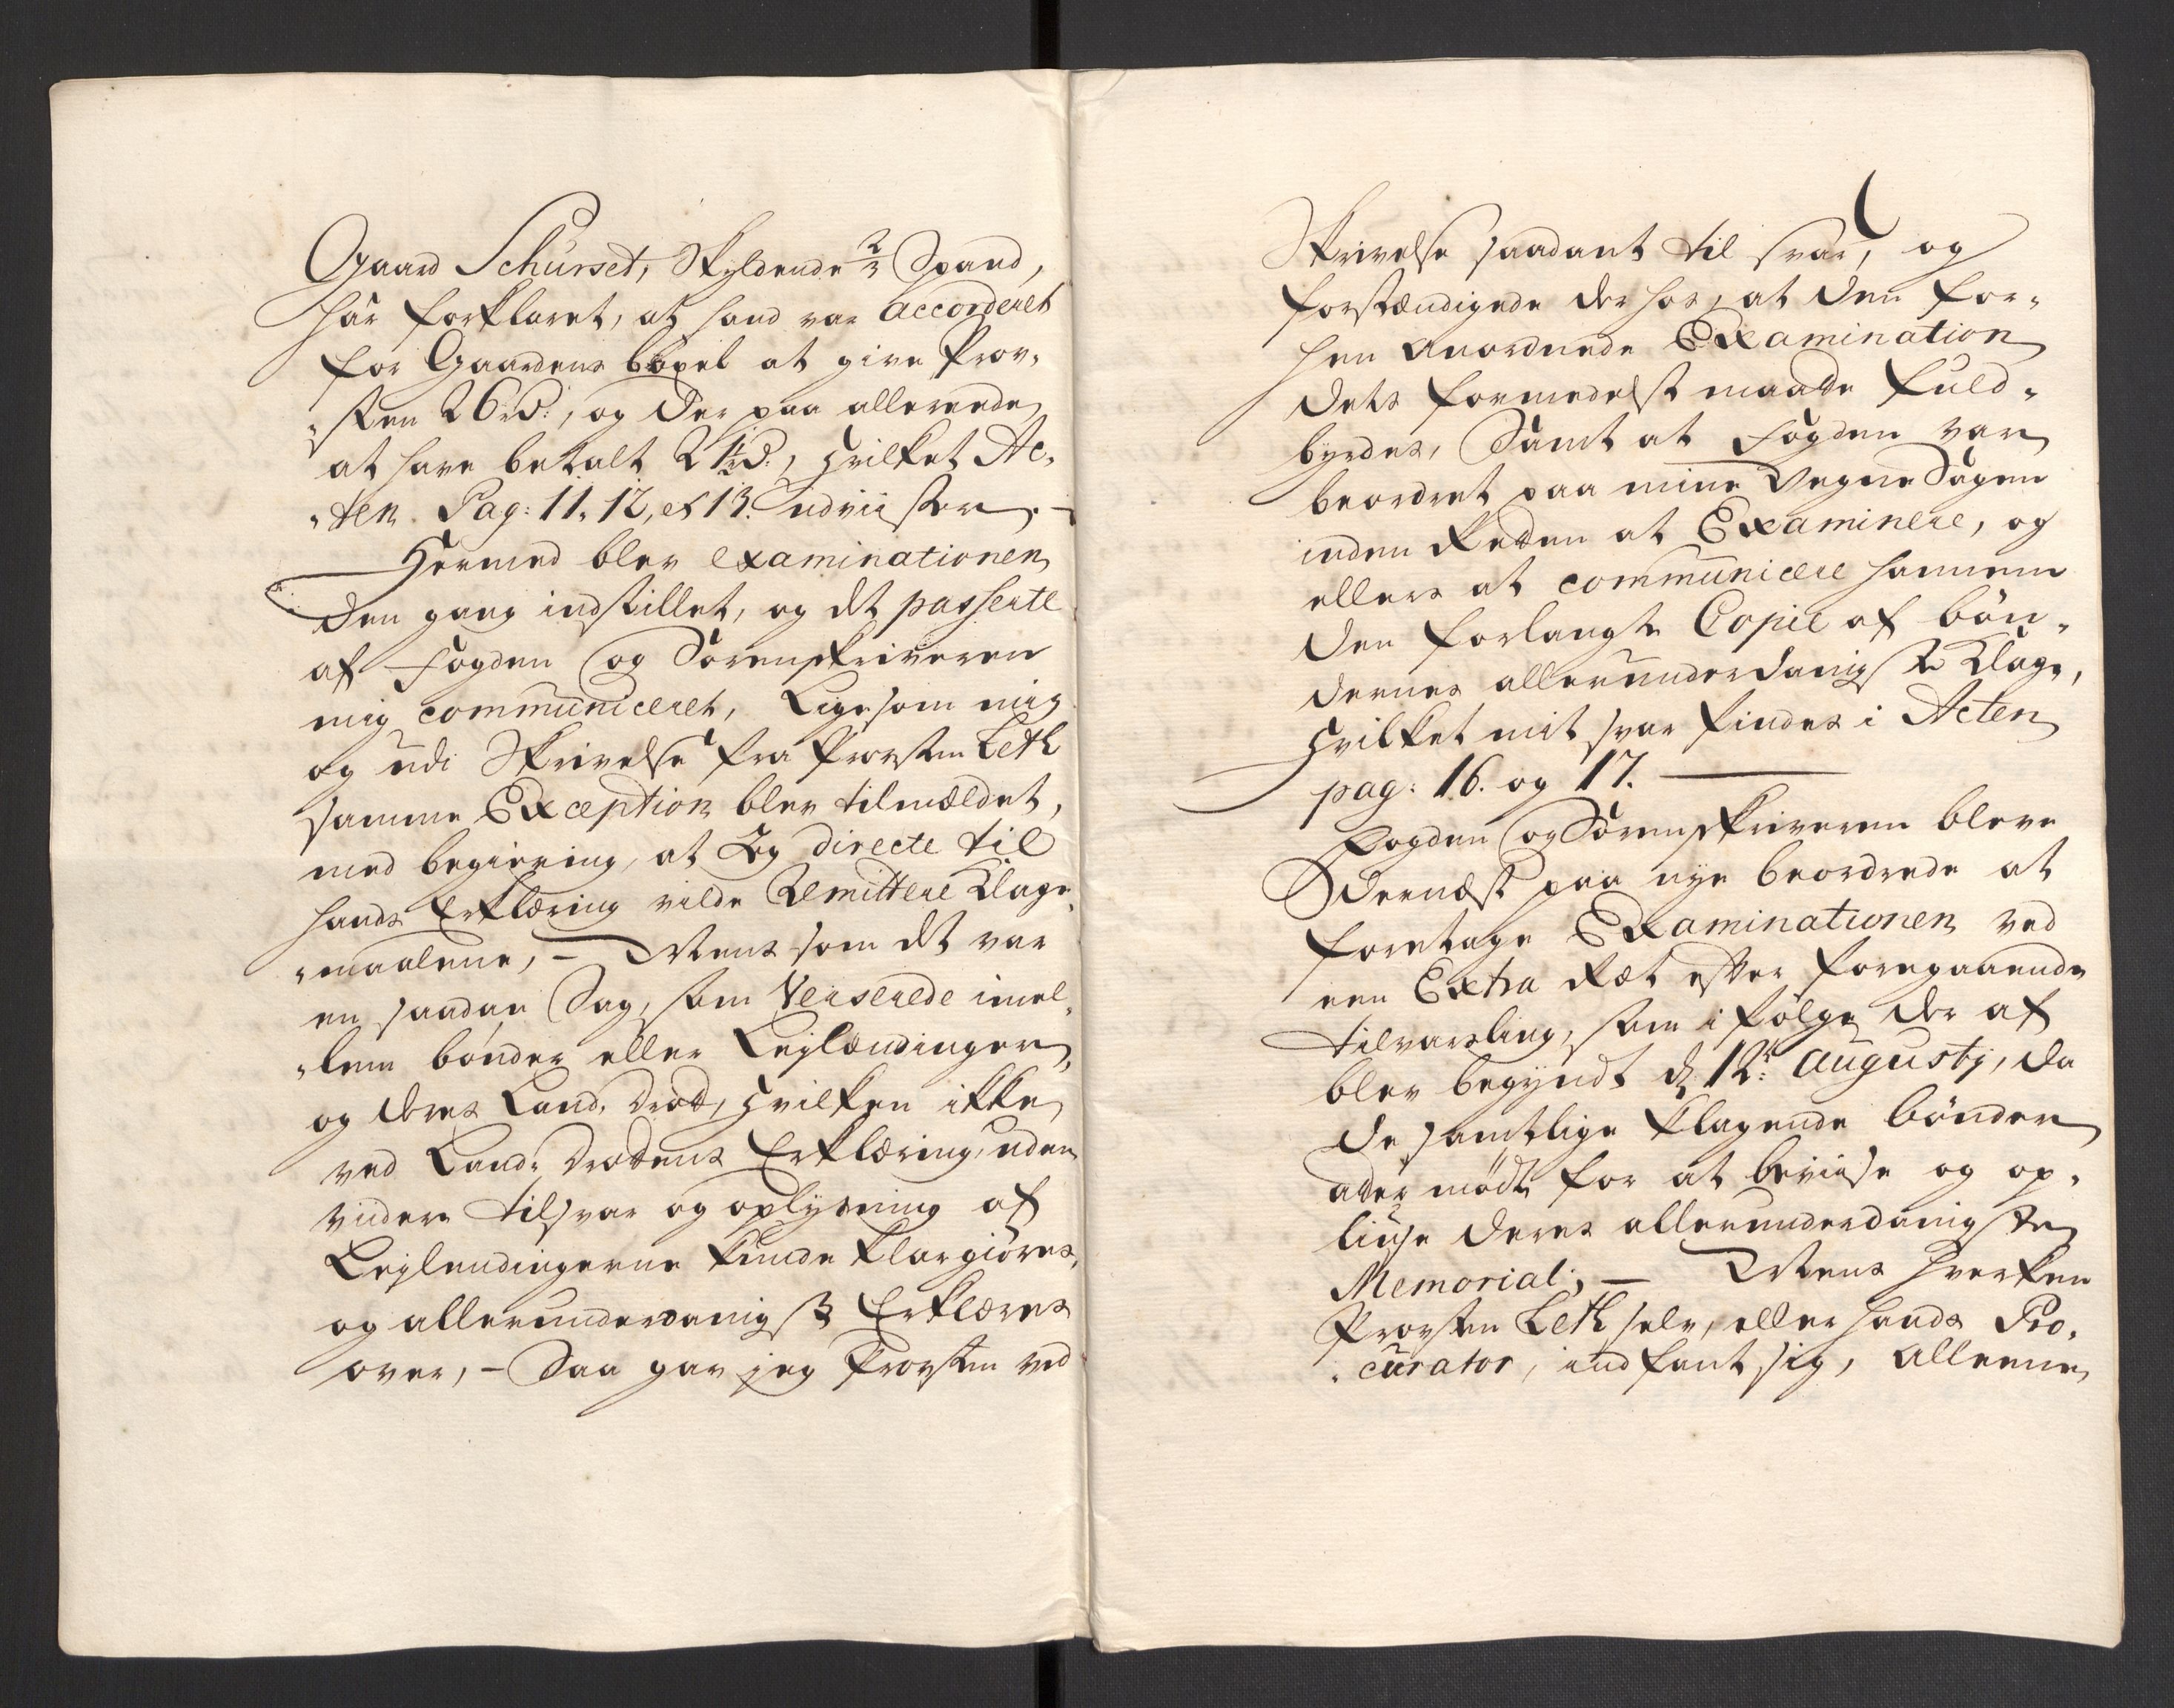 Gaard Schurset, Skyldende 2/3 Spand,
har forklaret, at hand var accorderet
for Gaardens böxel at give Prov-
sten 26 rd:, og der paa allerrede
at have betalt 21 rd:, hvilket Ac-
ten Pag: 11. 12, et 13. udviiser. -
Hermed blev examinationen
den gang indstillet, og dt passerte
af Fogden og Sorenskriveren
mig communiceret, Ligesom mig
og udi Skrivelse fra Provsten Leth
samme Exception blev tilmeldet,
med begiering, at Jeg directe til
hands Erklæring vilde Remittere Klage-
maalene, - Mens som dt var
en saadan Sag, som Verserede imel-
lem bönder eller Leylændinger,
og deres Land-Drot, hvilken ikke
ved Land-Drottens Erklæring, uden
viidere tilsvar og oplysning af
Leylendingerne kunde klargiöres,
og allerunderdanigst Erklæres
over, - Saa gav jeg Provsten ved
Skrivelse saadant til svar, og
forstændigede der hos, at den for-
hen anordnede Examination
dets formedelst maatte fuld-
byrdes, Samt at Fogden var
beordret paa mine Vegne Sagen
inden Retten at Examinere, og
ellers at communicere hannem
den forlangte Copie af bön-
dernes allerunderdanigste Klage,
hvilket mit svar findes i Acten
pag: 16. og 17.
Fogden og Sorenskriveren bleve
dernæst paa nye beordrede at
foretage Examinationen ved
een Extra Ræt efter foregaaende
tilvarsling, som i fölge der af
blev begyndt d: 12te Augustij, da
de samtlige klagende bönder
atter mödte for at beviise og op-
liuse deres allerunderdanigste
Memorial; - Mens hverken
Provsten Leth selv, eller hands Pro-
curator, indfant sig, alleene